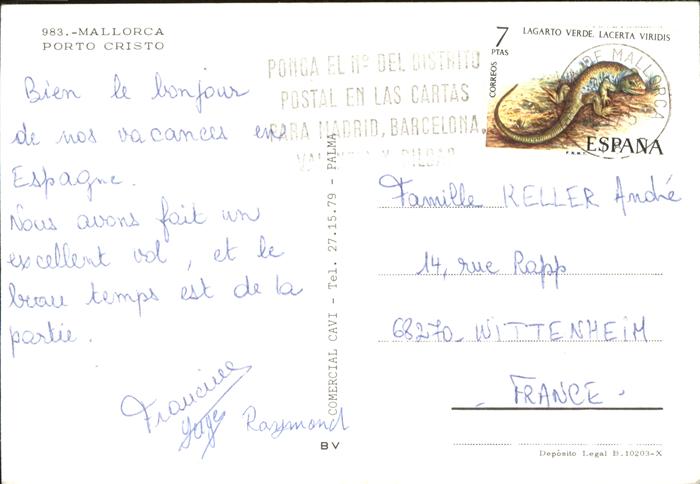 983.-MALLORCA
PORTO CRISTO
Bien le bonjour
de nos vacances en
Espagne.
Nous avons fait un
excellent vol, et le
beau temps est de la
partie.
Francine
Raymond
COMERCIAL CAVI - Tel. 27.15.79 - PALMA
BV
PONGA EL Nº DEL DISTRITO
POSTAL EN LAS CARTAS
PARA MADRID, BARCELONA,
VALENCIA Y BILBAO
7
PTAS
CORREOS
LAGARTO VERDE. LACERTA VIRIDIS
ESPAÑA
F.N.M.T.
DE MALLORCA
Famille KELLER André
14, rue Rapp
68270_ WITTENHEIM
- FRANCE -
Depósito Legal B.10203-X